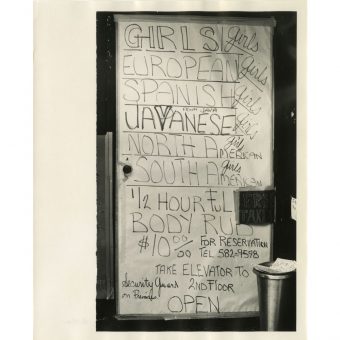 GIRLS! girls
EUROPEAN girls
SPANISH girls
FROM JAVA
JAVANESE girls
NORTH AMERICAN girls
SOUTH AMERICAN girls
1/2 HOUR
BODY RUB
$10 00/00 FOR RESERVATION
TEL 582-9598
TAKE ELEVATOR TO
2ND FLOOR
Security Guard
on Premises
OPEN